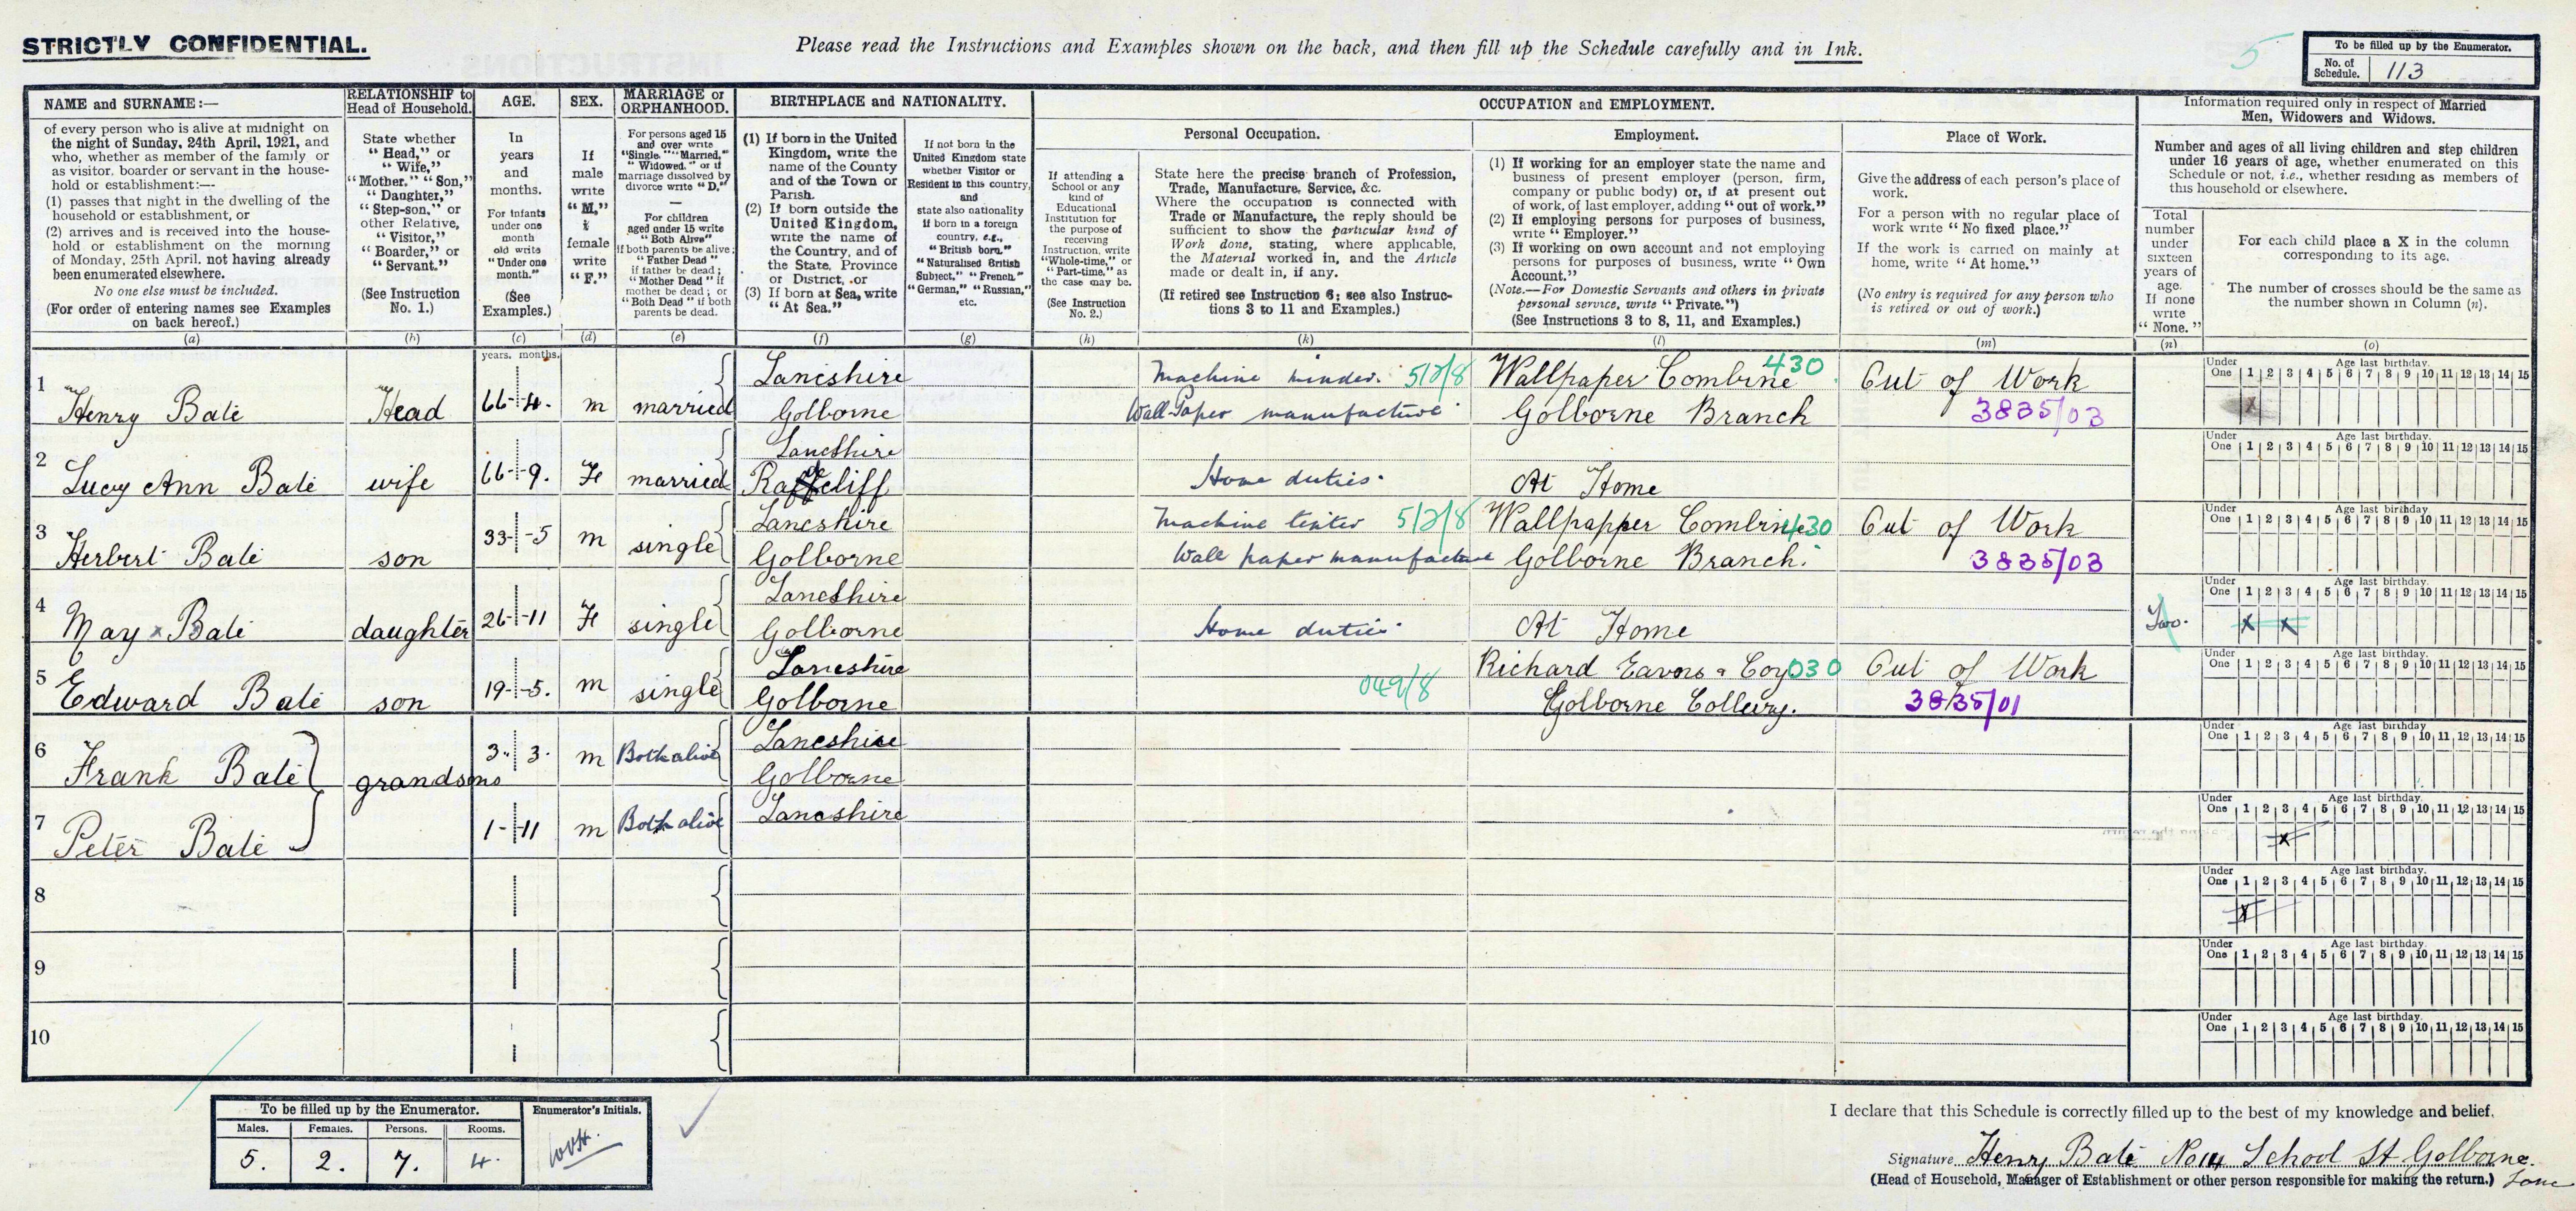 STRICTLY CONFIDENTIAL.
Please read the Instructions and Examples shown on the back, and then fill up the Schedule carefully and in Ink.
5
To be filled up by the Enumerator.
No. of Schedule. 113
NAME and SURNAME:—
of every person who is alive at midnight on
the night of Sunday, 24th April, 1921, and
who, whether as member of the family or
as visitor, boarder or servant in the house-
hold or establishment:—
(1) passes that night in the dwelling of the
household or establishment, or
(2) arrives and is received into the house-
hold or establishment on the morning
of Monday, 25th April, not having already
been enumerated elsewhere.
No one else must be included.
(For order of entering names see Examples
on back hereof.)
(a)
RELATIONSHIP to
Head of Household.
State whether
"Head," or
"Wife,"
"Mother," "Son,"
"Daughter,"
"Step-son," or
other Relative,
"Visitor,"
"Boarder," or
"Servant."
(See Instruction
No. 1.)
(b)
AGE.
In
years
and
months.
For infants
under one
month
old write
"Under one
month."
(See
Examples.)
(c)
SEX.
If
male
write
"M,"
if
female
write
"F."
(d)
MARRIAGE or
ORPHANHOOD.
For persons aged 15
and over write
"Single," "Married,"
"Widowed," or if
marriage dissolved by
divorce write "D."
For children
aged under 15 write
"Both Alive"
if both parents be alive;
"Father Dead"
if father be dead;
"Mother Dead" if
mother be dead; or
"Both Dead" if both
parents be dead.
(e)
BIRTHPLACE and NATIONALITY.
(1) If born in the United
Kingdom, write the
name of the County
and of the Town or
Parish.
(2) If born outside the
United Kingdom,
write the name of
the Country, and of
the State, Province
or District, or
(3) If born at Sea, write
"At Sea."
(f)
If not born in the
United Kingdom state
whether Visitor or
Resident in this country,
and
state also nationality
if born in a foreign
country, e.g.,
"British born,"
"Naturalised British
Subject," "French,"
"German," "Russian,"
etc.
(g)
OCCUPATION and EMPLOYMENT.
If attending a
School or any
kind of
Educational
Institution for
the purpose of
receiving
Instruction, write
"Whole-time," or
"Part-time," as
the case may be.
(See Instruction
No. 2.)
(h)
Personal Occupation.
State here the precise branch of Profession,
Trade, Manufacture, Service, &c.
Where the occupation is connected with
Trade or Manufacture, the reply should be
sufficient to show the particular kind of
Work done, stating, where applicable,
the Material worked in, and the Article
made or dealt in, if any.
(If retired see Instruction 6; see also Instruc-
tions 3 to 11 and Examples.)
(k)
Employment.
(1) If working for an employer state the name and
business of present employer (person, firm,
company or public body) or, if at present out
of work, of last employer, adding "out of work."
(2) If employing persons for purposes of business,
write "Employer."
(3) If working on own account and not employing
persons for purposes of business, write "Own
Account."
(Note.—For Domestic Servants and others in private
personal service, write "Private.")
(See Instructions 3 to 8, 11, and Examples.)
(l)
Place of Work.
Give the address of each person's place of
work.
For a person with no regular place of
work write "No fixed place."
If the work is carried on mainly at
home, write "At home."
(No entry is required for any person who
is retired or out of work.)
(m)
Information required only in respect of Married
Men, Widowers and Widows.
Number and ages of all living children and step children
under 16 years of age, whether enumerated on this
Schedule or not, i.e., whether residing as members of
this household or elsewhere.
Total
number
under
sixteen
years of
age.
If none
write
"None."
(n)
For each child place a X in the column
corresponding to its age.
The number of crosses should be the same as
the number shown in Column (n).
(o)
years. months.
Under One Age last birthday. 1 2 3 4 5 6 7 8 9 10 11 12 13 14 15
1 Henry Bate Head 66-4. m married Lancshire Golborne Machine minder. 5/2/8 Wall Paper manufacture Wallpaper Combine 430 Golborne Branch Out of Work 3835/03 X
Under One Age last birthday. 1 2 3 4 5 6 7 8 9 10 11 12 13 14 15
2 Lucy Ann Bate wife 66-9. F married Lancshire Home duties. At Home
Under One Age last birthday. 1 2 3 4 5 6 7 8 9 10 11 12 13 14 15
3 Herbert Bate son 33-5 m single Lancshire Golborne Machine tenter 5/2/8 Wall paper manufacture Wallpapper Combine 430 Golborne Branch. Out of Work 3835/03
Under One Age last birthday. 1 2 3 4 5 6 7 8 9 10 11 12 13 14 15
4 May x Bate daughter 26-11 F single Lancshire Golborne Home duties At Home Two. X X
Under One Age last birthday. 1 2 3 4 5 6 7 8 9 10 11 12 13 14 15
5 Edward Bate son 19-5. m single Lancshire Golborne 049/8 Richard Evans & Coy 030 Golborne Out of Work 3835/01
Under One Age last birthday 1 2 3 4 5 6 7 8 9 10 11 12 13 14 15
6 Frank Bate grandsons 3. 3. m Both alive Lancshire Golborne
Under One Age last birthday. 1 2 3 4 5 6 7 8 9 10 11 12 13 14 15
7 Peter Bate 1-11 m Both alive Lancshire X
Under One Age last birthday. 1 2 3 4 5 6 7 8 9 10 11 12 13 14 15
8 X
Under One Age last birthday. 1 2 3 4 5 6 7 8 9 10 11 12 13 14 15
9
Under One Age last birthday. 1 2 3 4 5 6 7 8 9 10 11 12 13 14 15
10
To be filled up by the Enumerator.
Males. Females. Persons. Rooms.
5. 2. 7. 4.
Enumerator's Initials.
I declare that this Schedule is correctly filled up to the best of my knowledge and belief.
Signature Henry Bate No 14 School St Golborne.
(Head of Household, Manager of Establishment or other person responsible for making the return.)